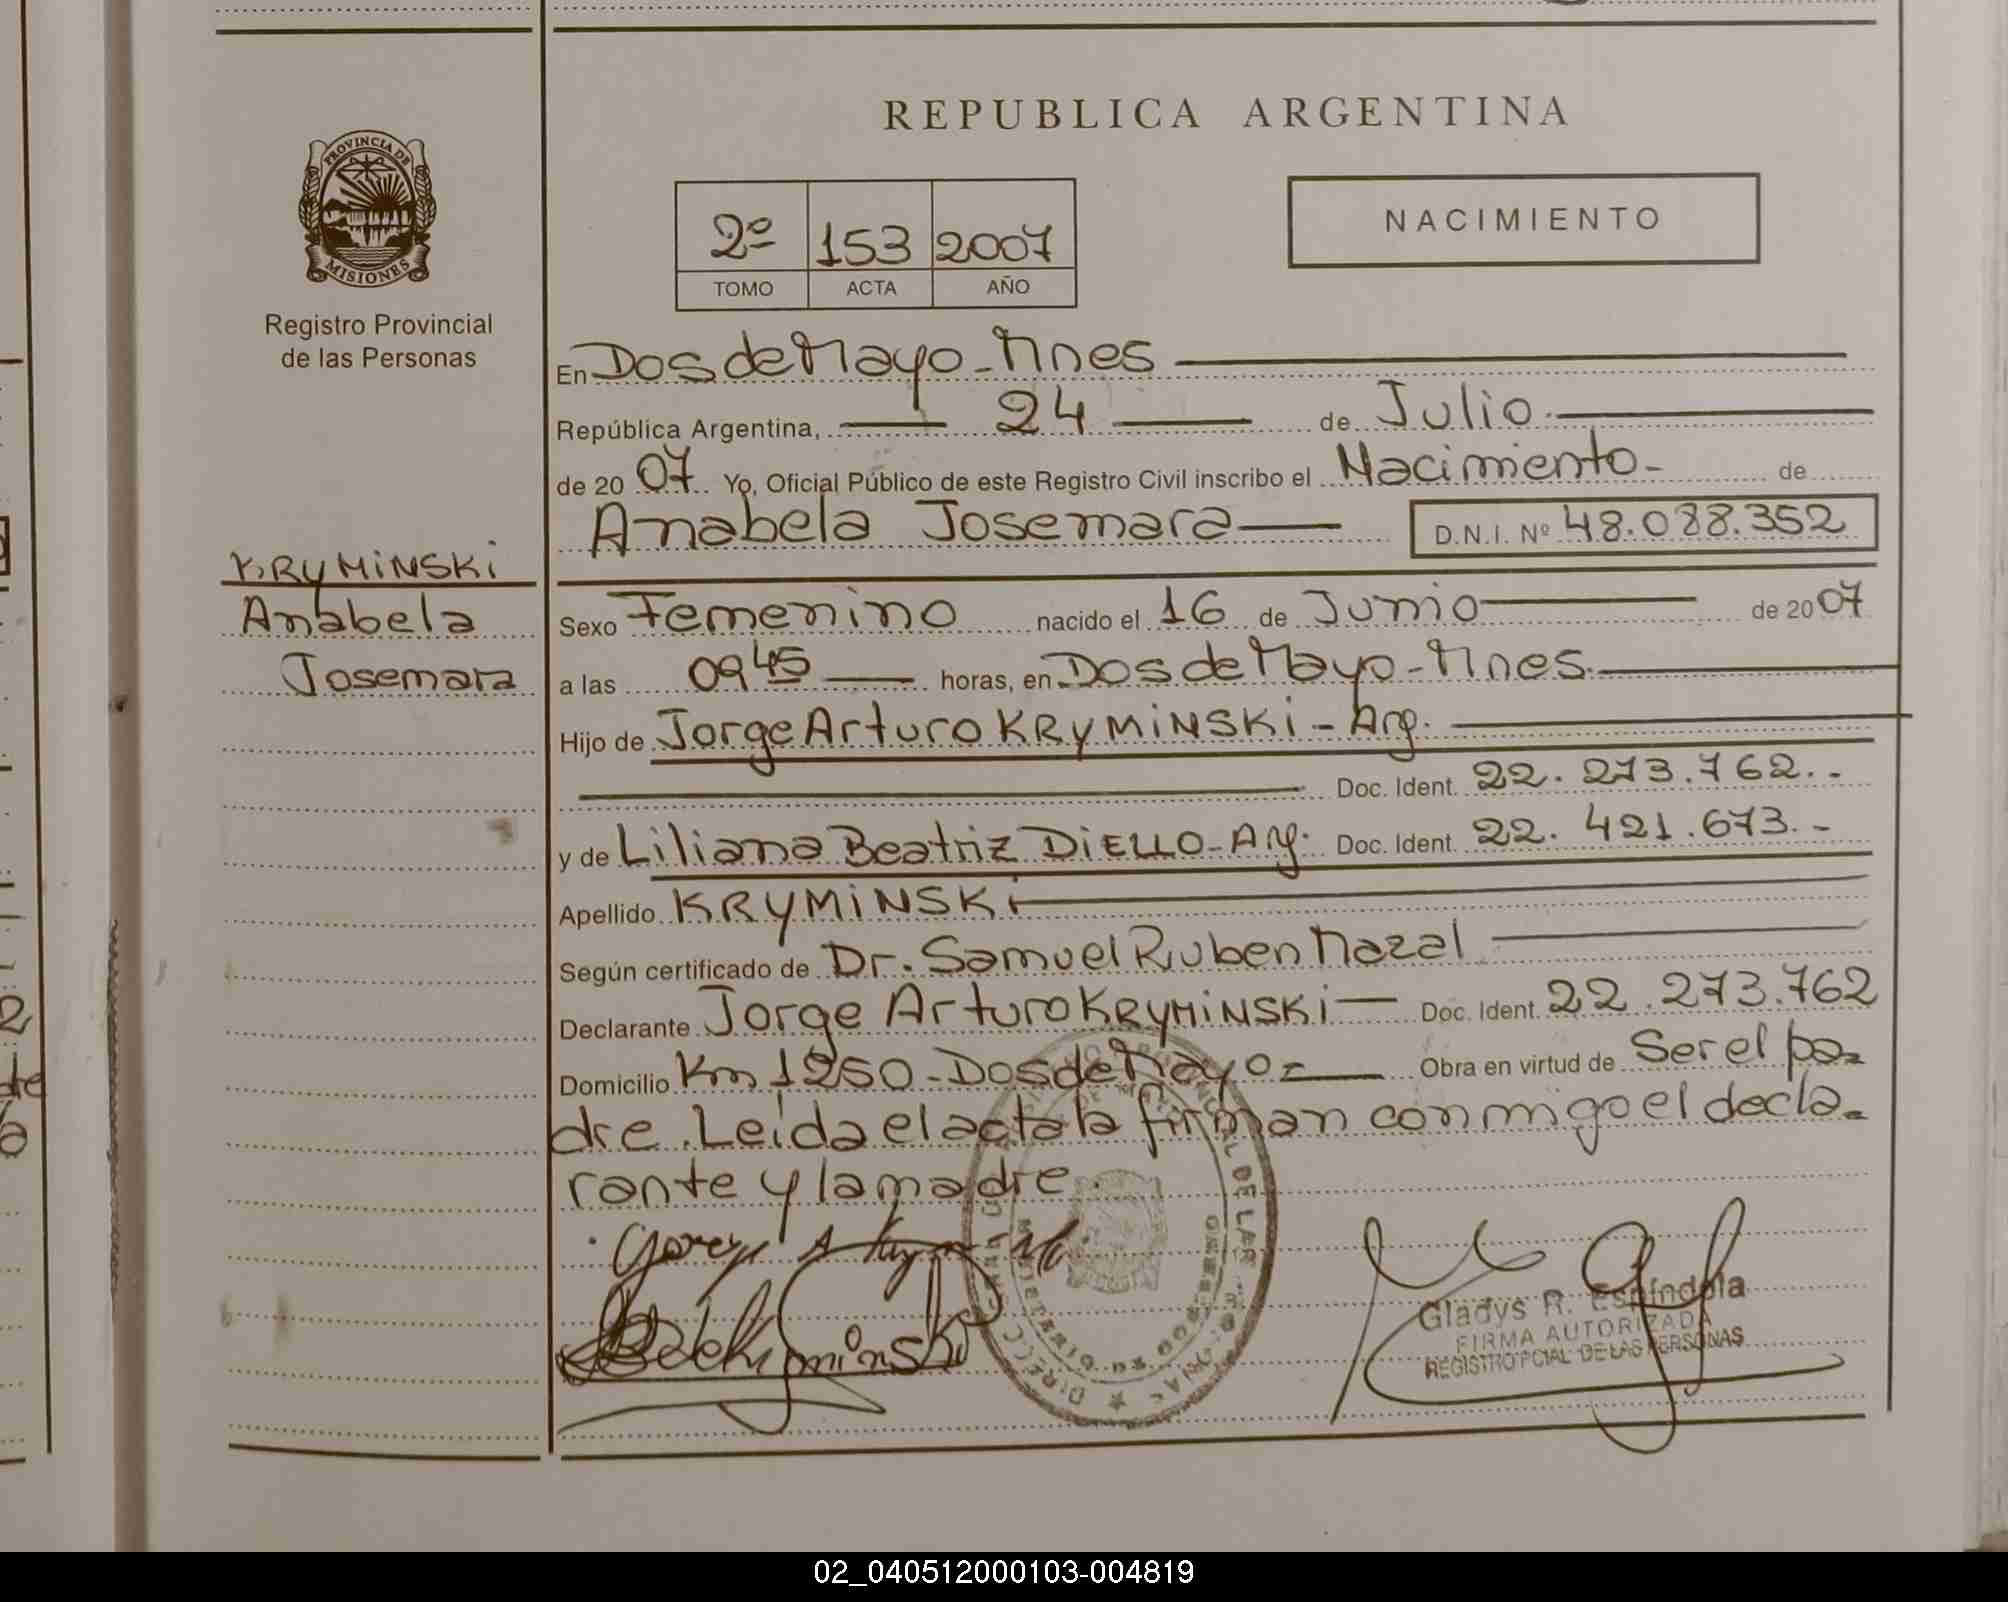 REPUBLICA ARGENTINA
PROVINCIA DE MISIONES
Registro Provincial
de las Personas
2º 153 2007
TOMO ACTA AÑO
NACIMIENTO
En Dos de Mayo - Mnes
República Argentina, 24 de Julio.
de 20 07 Yo, Oficial Público de este Registro Civil inscribo el Nacimiento - de
Anabela Josemara D.N.I. Nº 48.088.352
KRYMiNSKi
Anabela
Josemara
Sexo Femenino nacido el 16 de Junio de 20 07
a las 09 45 horas, en Dos de Mayo - Mnes.
Hijo de Jorge Arturo KRYMiNSKi - Arg.
Doc. Ident. 22.273.762.-
y de Liliana Beatriz DiELLO - Arg. Doc. Ident. 22.421.673.-
Apellido KRYMiNSKi
Según certificado de Dr. Samuel Ruben Nazal
Declarante Jorge Arturo KRYMiNSKi Doc. Ident. 22.273.762
Domicilio Km 1250 - Dos de Mayo = Obra en virtud de Ser el pa=
dre. Leída el acta la firman conmigo el decla=
rante y la madre.
Gladys R. Espíndola
FIRMA AUTORIZADA
REGISTRO PCIAL DE LAS PERSONAS
02_040512000103-004819